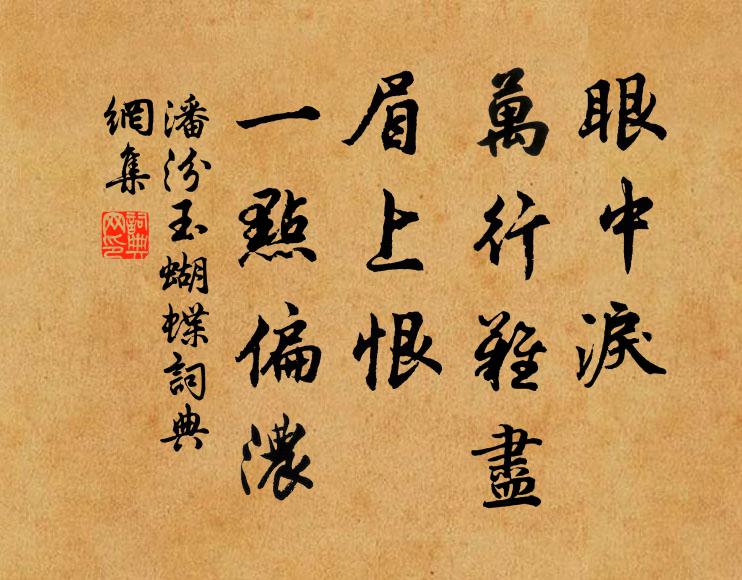 眼中淚
萬行難盡
眉上恨
一點偏濃
潘汾玉蝴蝶詞典
網集
詞典網印